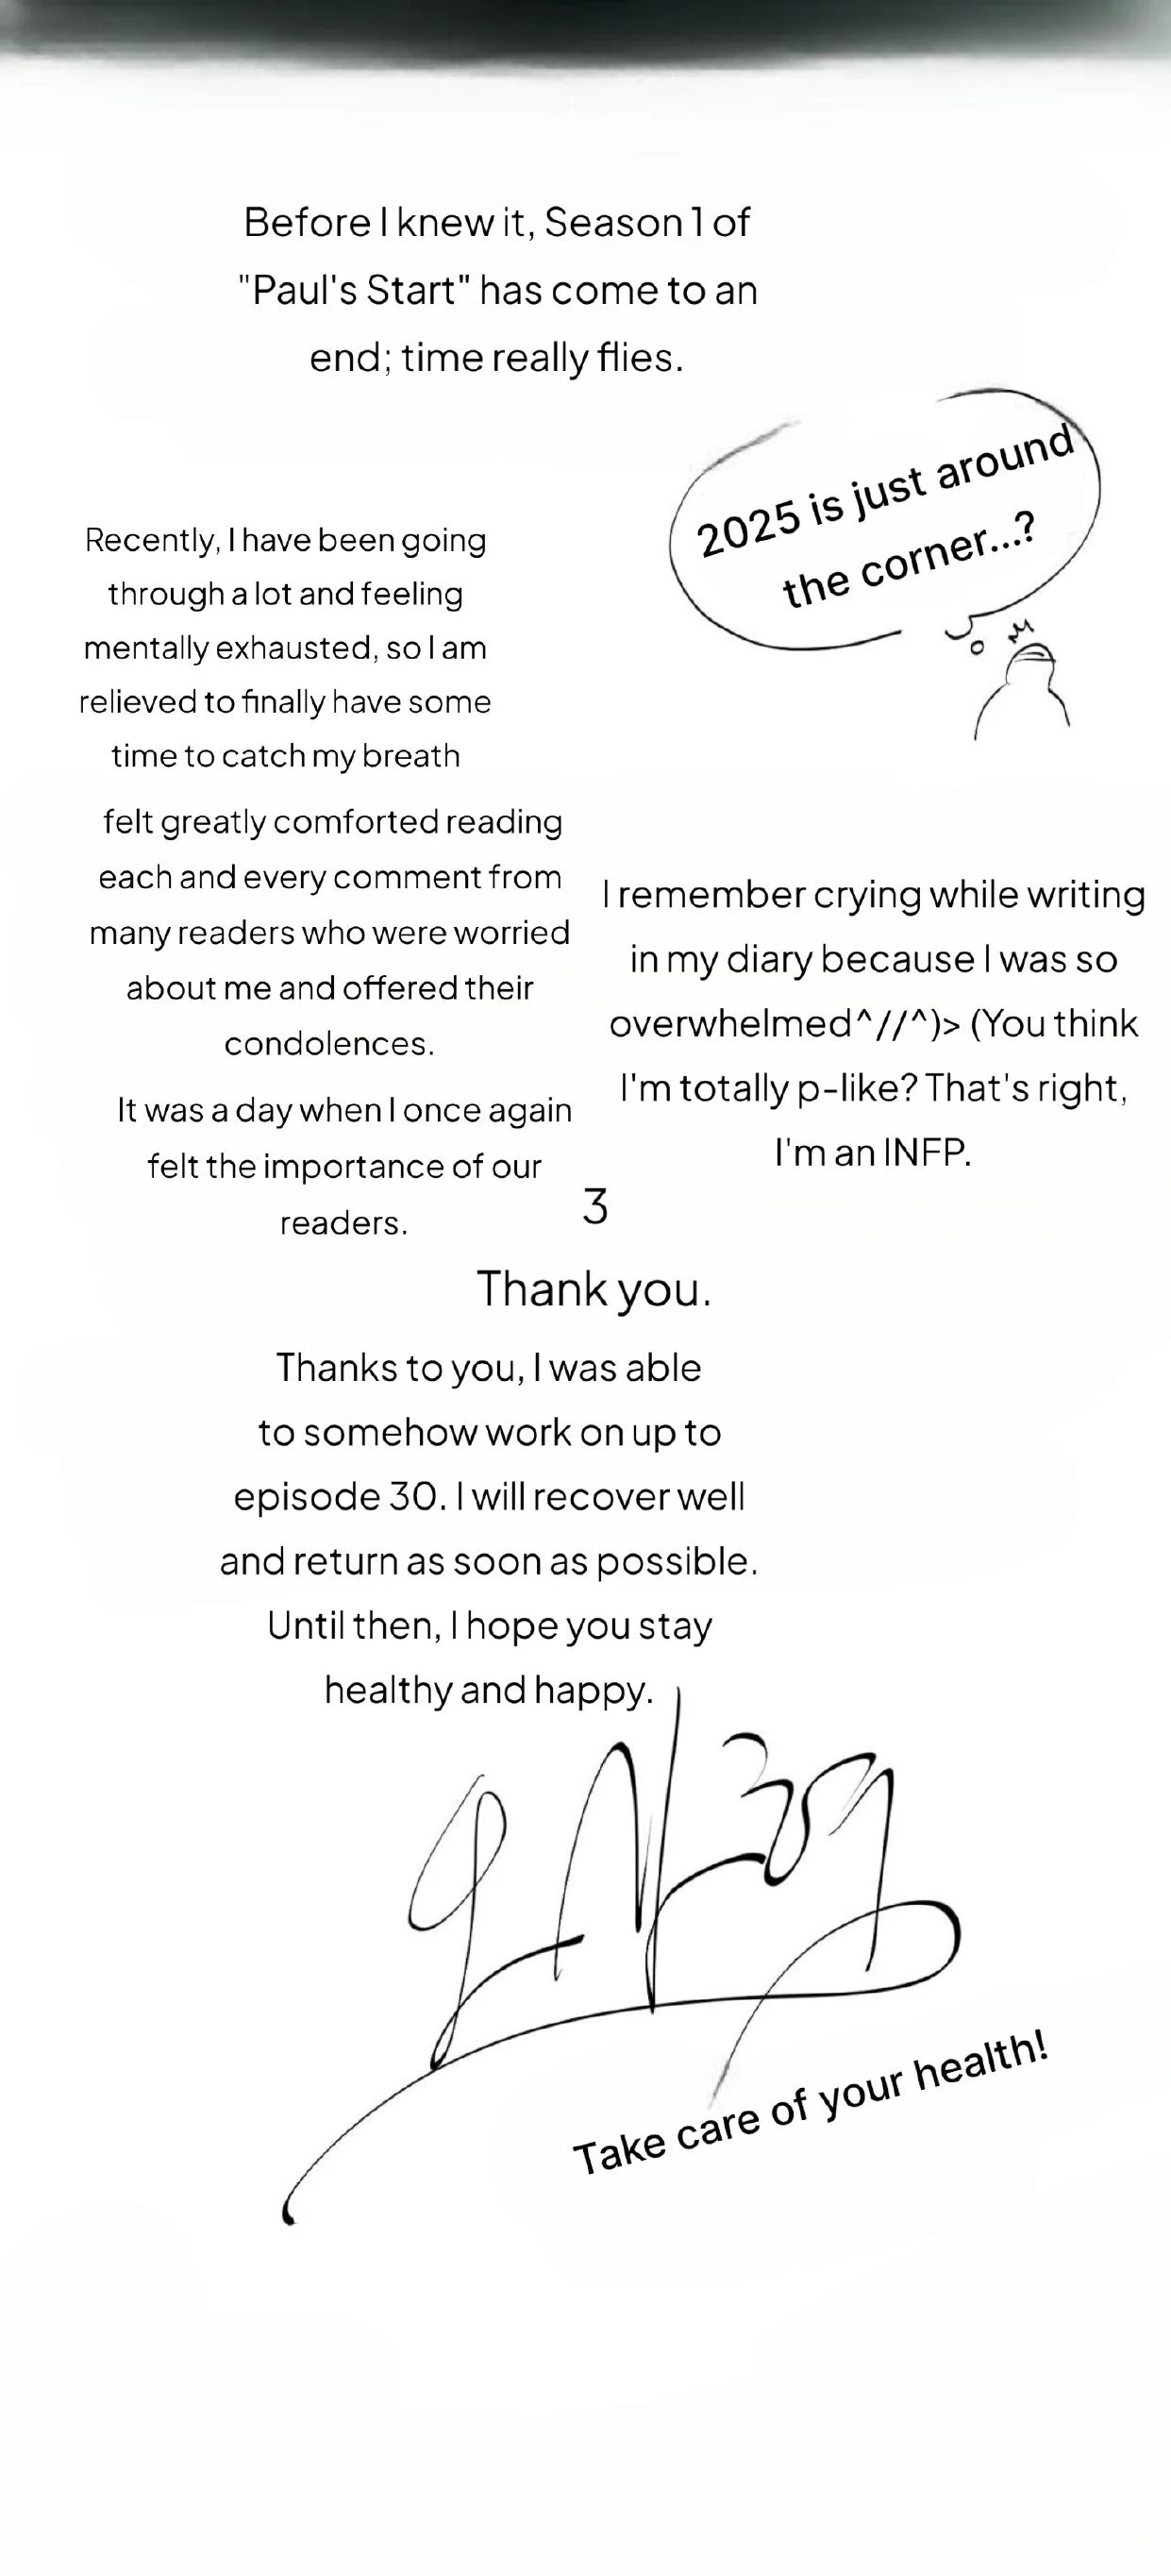 Before I knew it, Season 1 of
"Paul's Start" has come to an
end; time really flies.
2025 is just around
the corner...?
Recently, I have been going
through a lot and feeling
mentally exhausted, so I am
relieved to finally have some
time to catch my breath
felt greatly comforted reading
each and every comment from
many readers who were worried
about me and offered their
condolences.
I remember crying while writing
in my diary because I was so
overwhelmed^//^)> (You think
I'm totally p-like? That's right,
I'm an INFP.
It was a day when I once again
felt the importance of our
readers.
3
Thank you.
Thanks to you, I was able
to somehow work on up to
episode 30. I will recover well
and return as soon as possible.
Until then, I hope you stay
healthy and happy.
Take care of your health!